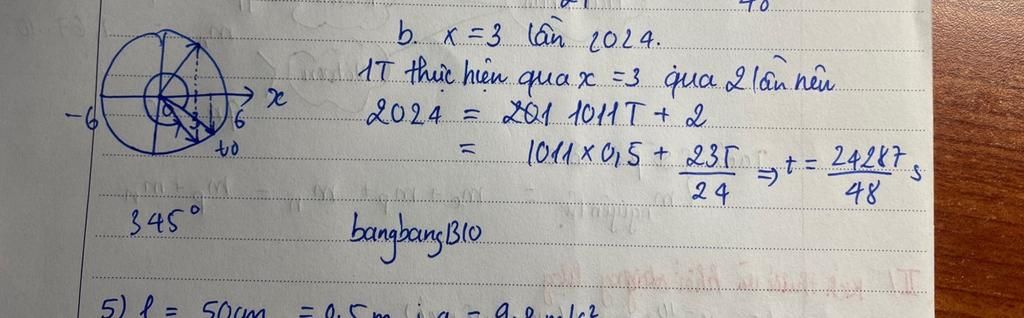 b. x = 3 lần 2024.
1T thực hiện qua x = 3 qua 2 lần nên
x
-6
6
2024 = 1011T + 2
t0
= 1011 x 0,5 + 23T/24 => t = 24287/48 s
345°
bangbangB10
5) l = 50cm = 0,5m